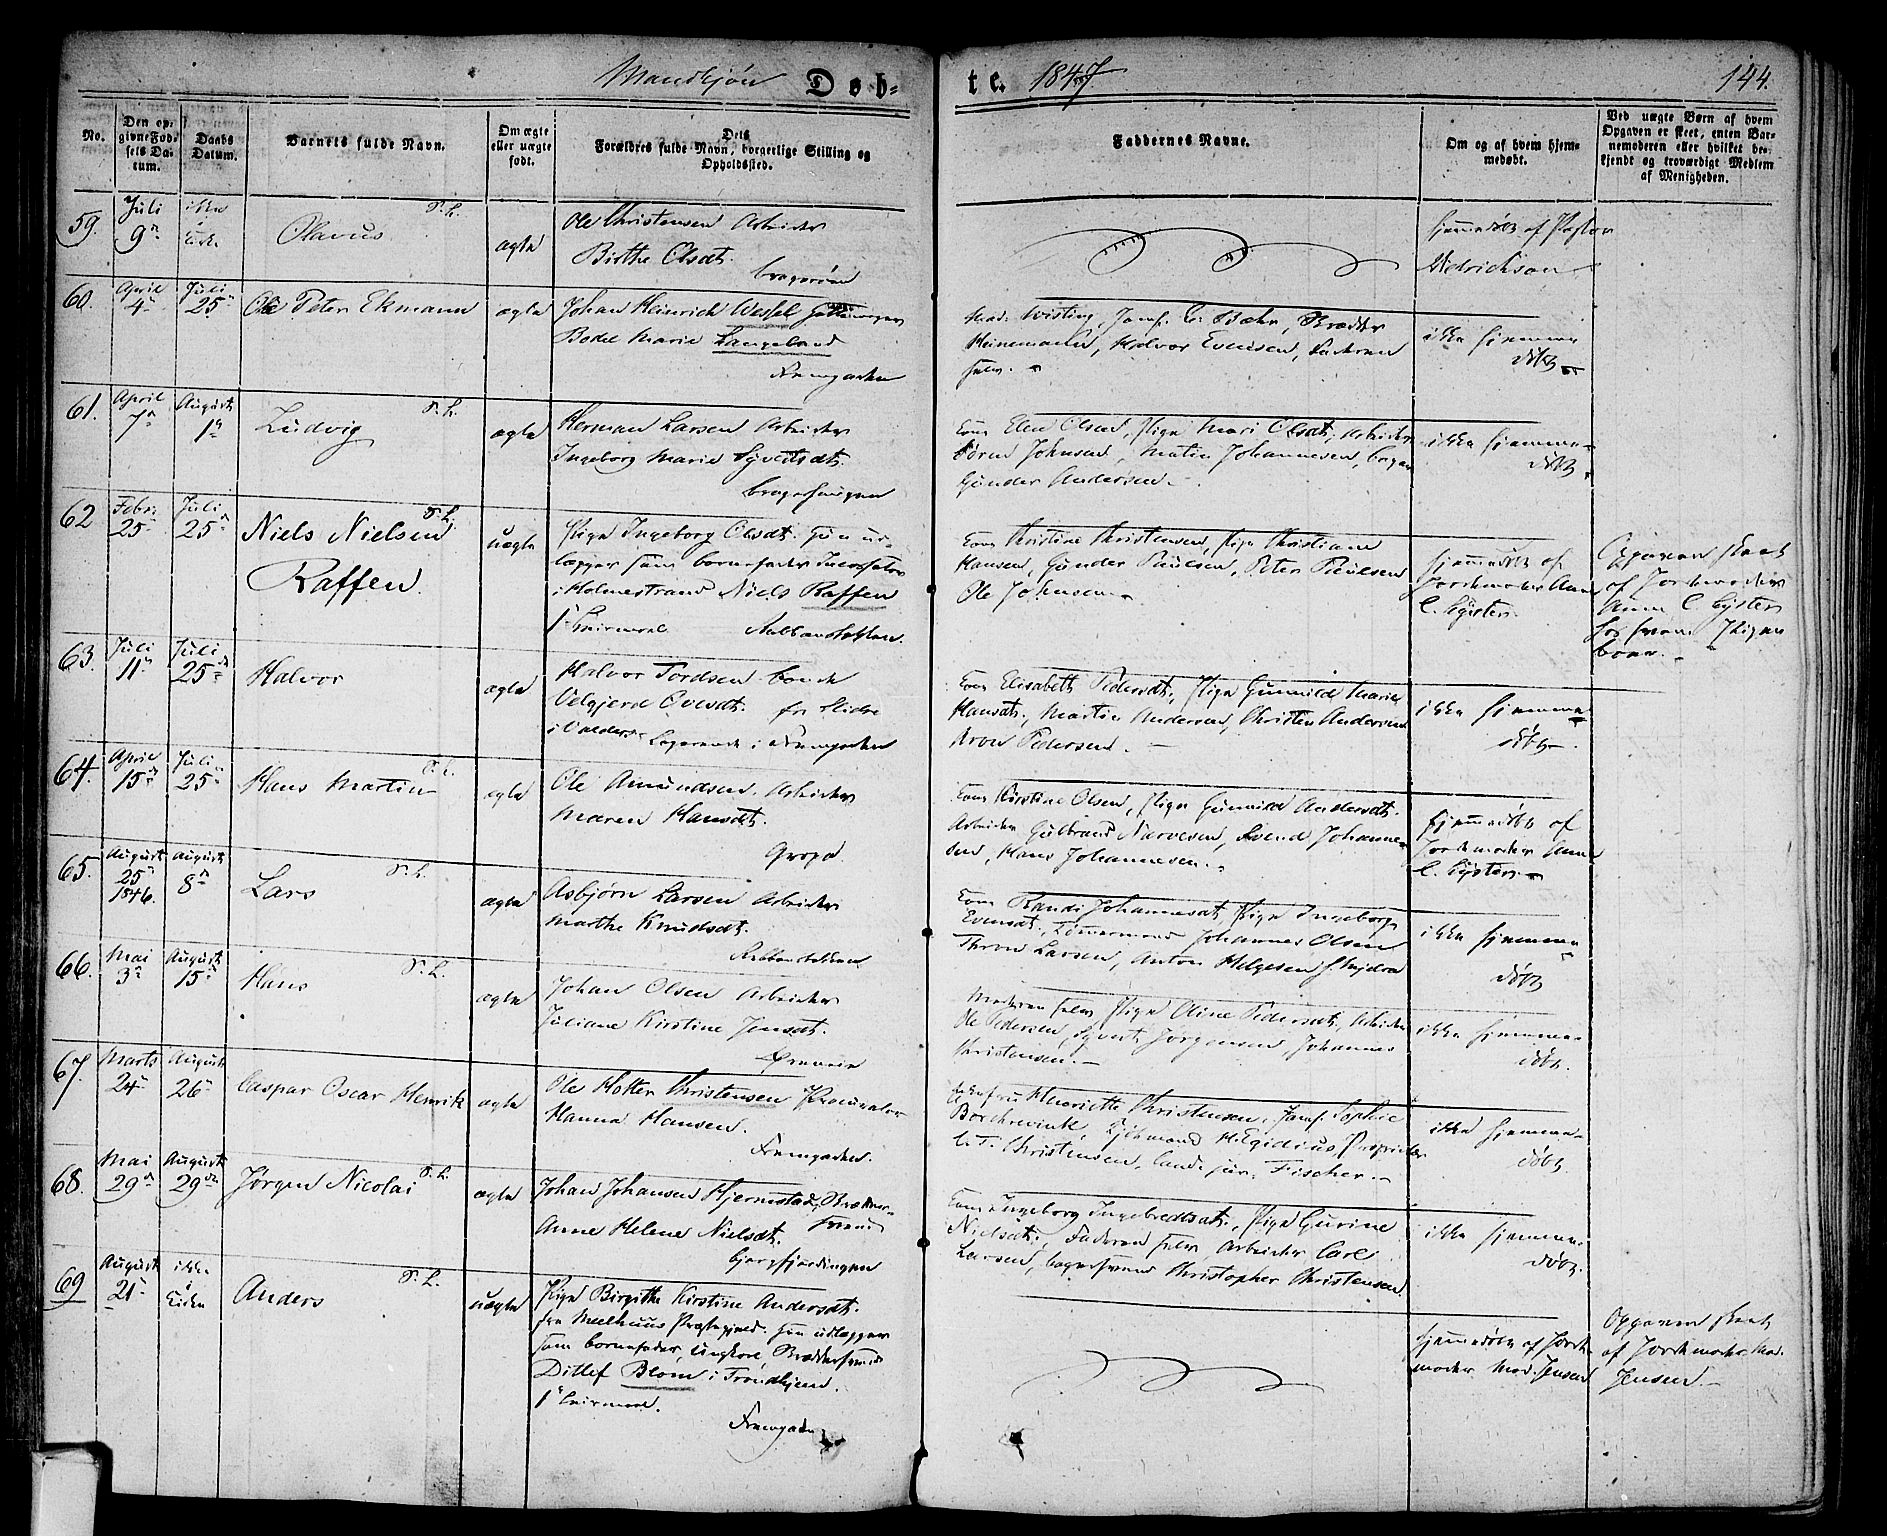 Mandkjøn Døb-
te. 1847. 144.
No.
Den op-
givne Fød-
sels Da-
tum.
Daabs
Datum.
Barnets fulde Navn.
Om ægte
eller uægte
født.
Dets
Forældres fulde Navn, borgerlige Stilling og
Opholdssted.
Faddernes Navne.
Om og af hvem hjem-
medøbt.
Ved uægte Børn af hvem
Opgaven er skeet, enten Bar-
nemoderen eller hvilket be-
kjendt og troværdigt Medlem
af Menigheden.
59. Juli 9 ikke Olavus ægte
Ole Christensen Arbeider
Birthe Olsdt.
Bragerøen
hjemmedøbt af Pastor
Didrickson
60. April 4 Juli 25 Ole Peter Ekmann ægte
Johan Heinrich Wessel
Bodel Marie Langeland
Fremgaden
Mad. Wisting, Jomf. Bæhr, Brødder
Heinemann, Halvor Evensen, Faderen
selv.
ikke hjemme
døbt
61. April 7 August 1 Ludvig ægte
Herman Larsen Arbeider
Ingeborg Marie Syvertsdt.
Kone Elen Olsen, Pige Mari Olsdt., Arbeider
Søren Johnsen, Matin Johannesen,
Gunder Andersen.
ikke hjemme-
døbt
62 Febr. 25 Juli 25 Niels Nielsen
Raffen uægte
Pige Ingeborg Olsdt. Hun ud-
lægger som barnefader
i Holmestrand Niels Raffen
1 Leirmaal.
Kone Christine Christensen, Pige Christiane
Hansen, Gunder Paulsen, Peter Paulsen
Ole Johnsen.
hjemmedøbt af
Jordemoder Anne
C. Gysler
Opgaven skeet
af Jordemoder
Anne C Gysler
63. Juli 11 Juli 25 Halvor ægte
Halvor Tordsen
Velgjerd Ovesdt. fra Slidre
i Valders. Logerende i Fremgaden
Kone Elisabeth Pedersdt., Pige Gunnilde Marie
Hansdt., Martin Andersen, Christen Andersen
Aron Pedersen.
ikke hjemme
døbt
64. April 15 Juli 25 Hans Martin ægte
Ole Amundsen, Arbeider
Maren Hansdt.
Kone Kirstine Olsen, Pige Gunnild Andersdt.
Arbeider Gulbrand Narvesen, Svend Johanne-
sen, Hans Johannesen.
hjemmedøbt af
Jordemoder Anne
C. Gysler
65. August 25 1846. August 8 Lars ægte
Asbjørn Larsen Arbeider
Marthe Knudsdt.
Kone Randi Johannesdt., Pige Ingeborg
Evensdt., Tømmermand Johannes Olsen
Thron Larsen, Anton Helgesen
ikke hjemme
døbt
66. Mai 3 August 15 Hans ægte
Johan Olsen Arbeider
Juliane Kirstine Jensdt.
Moderen selv, Pige Oline Pedersdt., Arbeider
Ole Pedersen, Syvert Jørgensen, Johannes
Christensen.
ikke hjemme-
døbt.
67. Marts 24 August 26 Caspar Oscar Henrik ægte
Ole Holter Christensen Procurator
Hanna Hansen.
Fremgaden.
Henriette Christensen, Jomf. Sophie
Borchrevink, Kjøbmand H. Egidius, Proprietær
C. T. Christensen, Cand. jur. Fischer.
ikke hjemme-
døbt.
68. Mai 29 August 29 Jørgen Nicolai ægte
Johan Johansen Hjermstad,
Anne Helene Nielsdt.
Bjergfjerdingen
Kone Ingeborg Ingebredtsdt., Pige Gurine
Nielsdt., Faderen selv, Arbeider Carl
Larsen, Christopher Christensen.
ikke hjemme-
døbt.
69 August 21 ikke
i
Anders uægte
Pige Birgithe Kirstine Andersdt.
fra Meelhuus Præstegjeld. Hun udlægger
som barnefader, Ungkarl,
Ditlef Blom i Trondhjem.
1 Leirmaal.
Fremgaden
hjemmedøbt af Jorde-
moder Mad. Jensen
Opgaven skeet
af Jordemoder Mad.
Jensen.